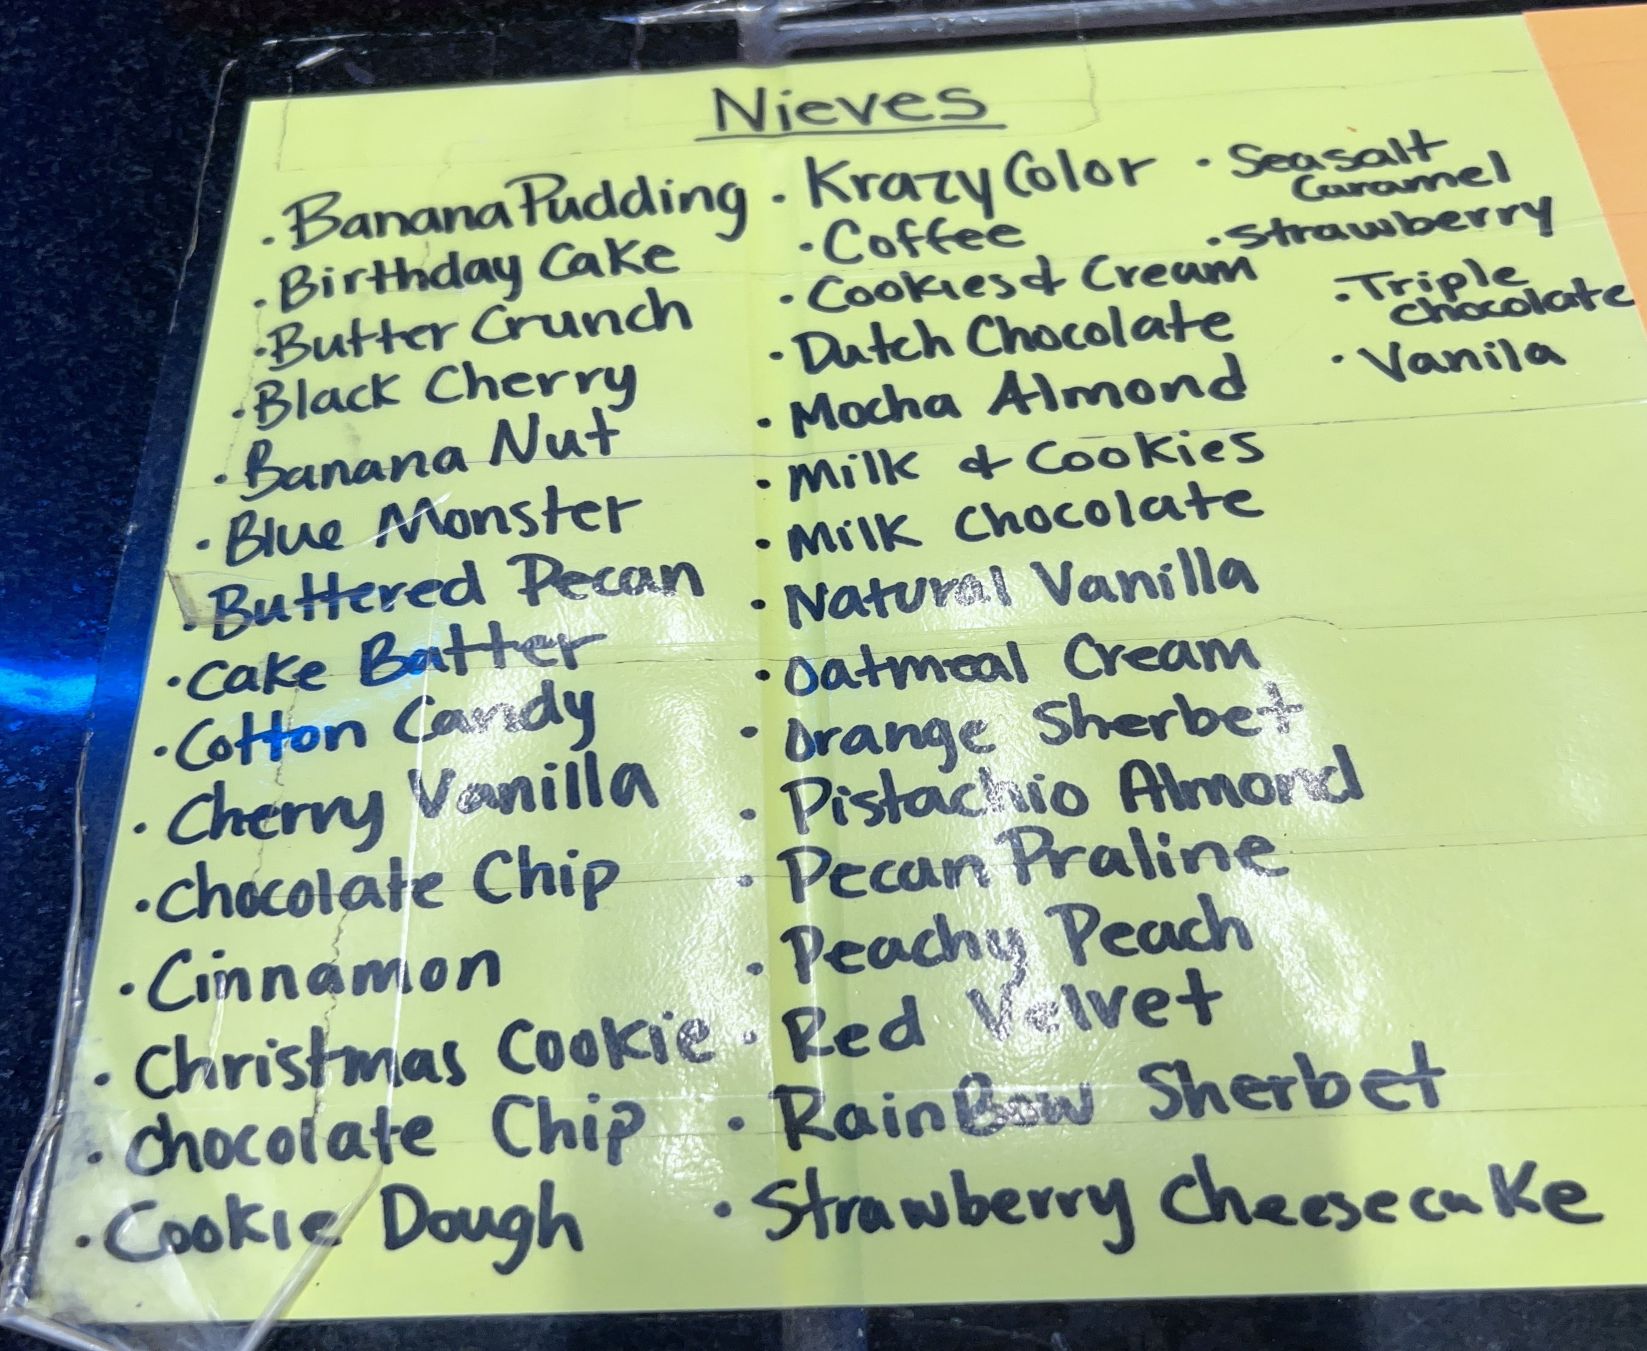 Nieves
· Banana Pudding
· Birthday Cake
· Butter Crunch
· Black Cherry
· Banana Nut
· Blue Monster
· Buttered Pecan
· Cake Batter
· Cotton Candy
· Cherry Vanilla
· Chocolate Chip
· Cinnamon
· Christmas Cookie
· Chocolate Chip
· Cookie Dough
· Krazy Color
· Coffee
· Cookies & Cream
· Dutch Chocolate
· Mocha Almond
· Milk & Cookies
· Milk Chocolate
· Natural Vanilla
· Oatmeal Cream
· Orange Sherbet
· Pistachio Almond
· Pecan Praline
· Peachy Peach
· Red Velvet
· RainBow Sherbet
· Strawberry Cheesecake
· Seasalt
Caramel
· Strawberry
· Triple
chocolate
· Vanila